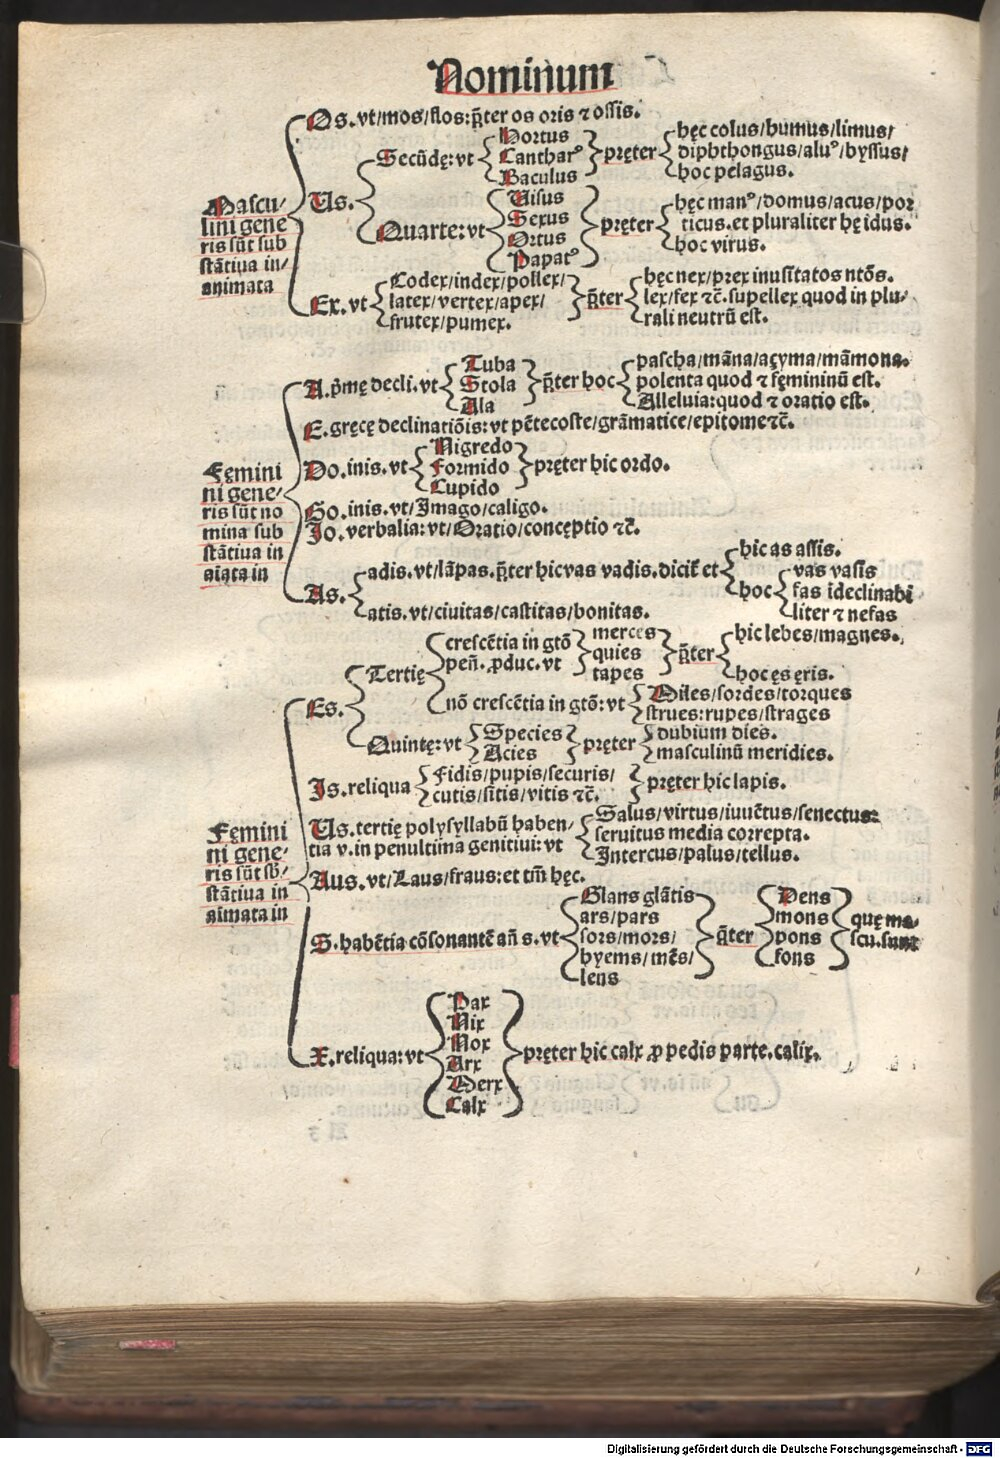 Nominum
Os.vt/mos/flos:p̄ter os oris ⁊ ossis.
Mascu/
lini gene
ris sūt sub
stātiua in/
animata
Us.
Secūdę:vt
Hortus
Canthar⁹
Baculus
pręter
hęc colus/humus/limus/
diphthongus/alu⁹/byssus/
hoc pelagus.
Quarte:vt
Uisus
Sexus
Ortus
Papat⁹
pręter
hęc man⁹/domus/acus/por
ticus.et pluraliter hę idus.
hoc virus.
Ex.vt
Codex/index/pollex/
latex/vertex/apex/
frutex/pumex.
p̄ter
hęc nex/prex inusitatos ntōs.
lex/fex ⁊c̄.supellex quod in plu/
rali neutrū est.
Fęmini
ni gene/
ris sūt no
mina sub
stātiua in
aiata in
A.p̄mę decli.vt
Tuba
Stola
Ala
p̄ter hoc
pascha/māna/açyma/māmona.
polenta quod ⁊ fęmininū est.
Alleluia:quod ⁊ oratio est.
E.gręcę declinatiōis:vt pētecoste/grāmatice/epitome⁊c̄.
Do.inis.vt
Nigredo
Formido
Cupido
pręter hic ordo.
Go.inis.vt/Imago/caligo.
Io.verbalia:vt/Oratio/conceptio ⁊c̄.
As.
adis.vt/lāpas.p̄ter hic vas vadis.dicit̄ et
hic as assis.
hoc
vas vasis
fas ideclinabi
liter ⁊ nefas
atis.vt/ciuitas/castitas/bonitas.
Fęmini
ni gene/
ris sūt sb̄/
stātiua in
aimata in
Es.
Tertię
crescētia in gtō
peñ.ꝓduc.vt
merces
quies
tapes
p̄ter
hic lebes/magnes.
hoc ęs ęris.
nō crescētia in gtō:vt
Miles/sordes/torques
strues:rupes/strages
Quintę:vt
Species
Acies
pręter
dubium dies.
masculinū meridies.
Is.reliqua
Fidis/pupis/securis/
cutis/sitis/vitis ⁊c̄.
pręter hic lapis.
Us.tertię polysyllabū haben/
tia v.in penultima genitiui:vt
Salus/virtus/iuuētus/senectus:
seruitus media correpta.
Intercus/palus/tellus.
Aus.vt/Laus/fraus:et tm̄ hęc.
S.habētia cōsonantē añ s.vt
Glans glātis
ars/pars
sors/mors/
hyems/mēs/
lens
p̄ter
Dens
mons
pons
fons
quę ma-
scu.sunt
X.reliqua:vt
Pax
Nix
Nox
Arx
Merx
Calx
pręter hic calx ꝓ pedis parte.calix.
Digitalisierung gefördert durch die Deutsche Forschungsgemeinschaft - DFG